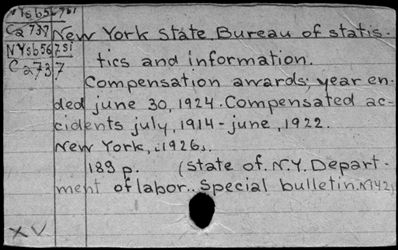 NYsb56751
Ca737
New York State. Bureau of statis-
NYsb56751
Ca737
tics and information.
Compensation awards, year en-
ded june 30, 1924. Compensated ac-
cidents july, 1914 - june, 1922.
New York, 1926.
189 p. (State of N.Y. Depart-
ment of labor. Special bulletin. №142)
XV